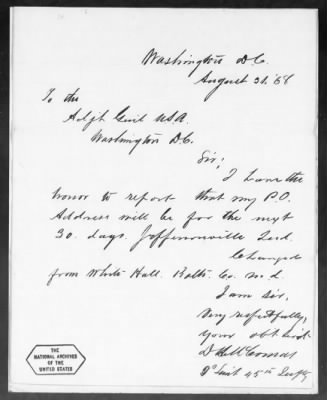 Washington D.C.
August 31. '68
To the
Adjt Genl USA.
Washington D.C.
Sir;
I have the
honor to report that my P.O.
Address will be for the next
30. days, Jeffersonville Ind.
Changed
from White Hall. Balto. Co. Md.
I am sir,
Very respectfully,
Your obt
1" Lieut 45th Infty
THE
NATIONAL ARCHIVES
OF THE
UNITED STATES